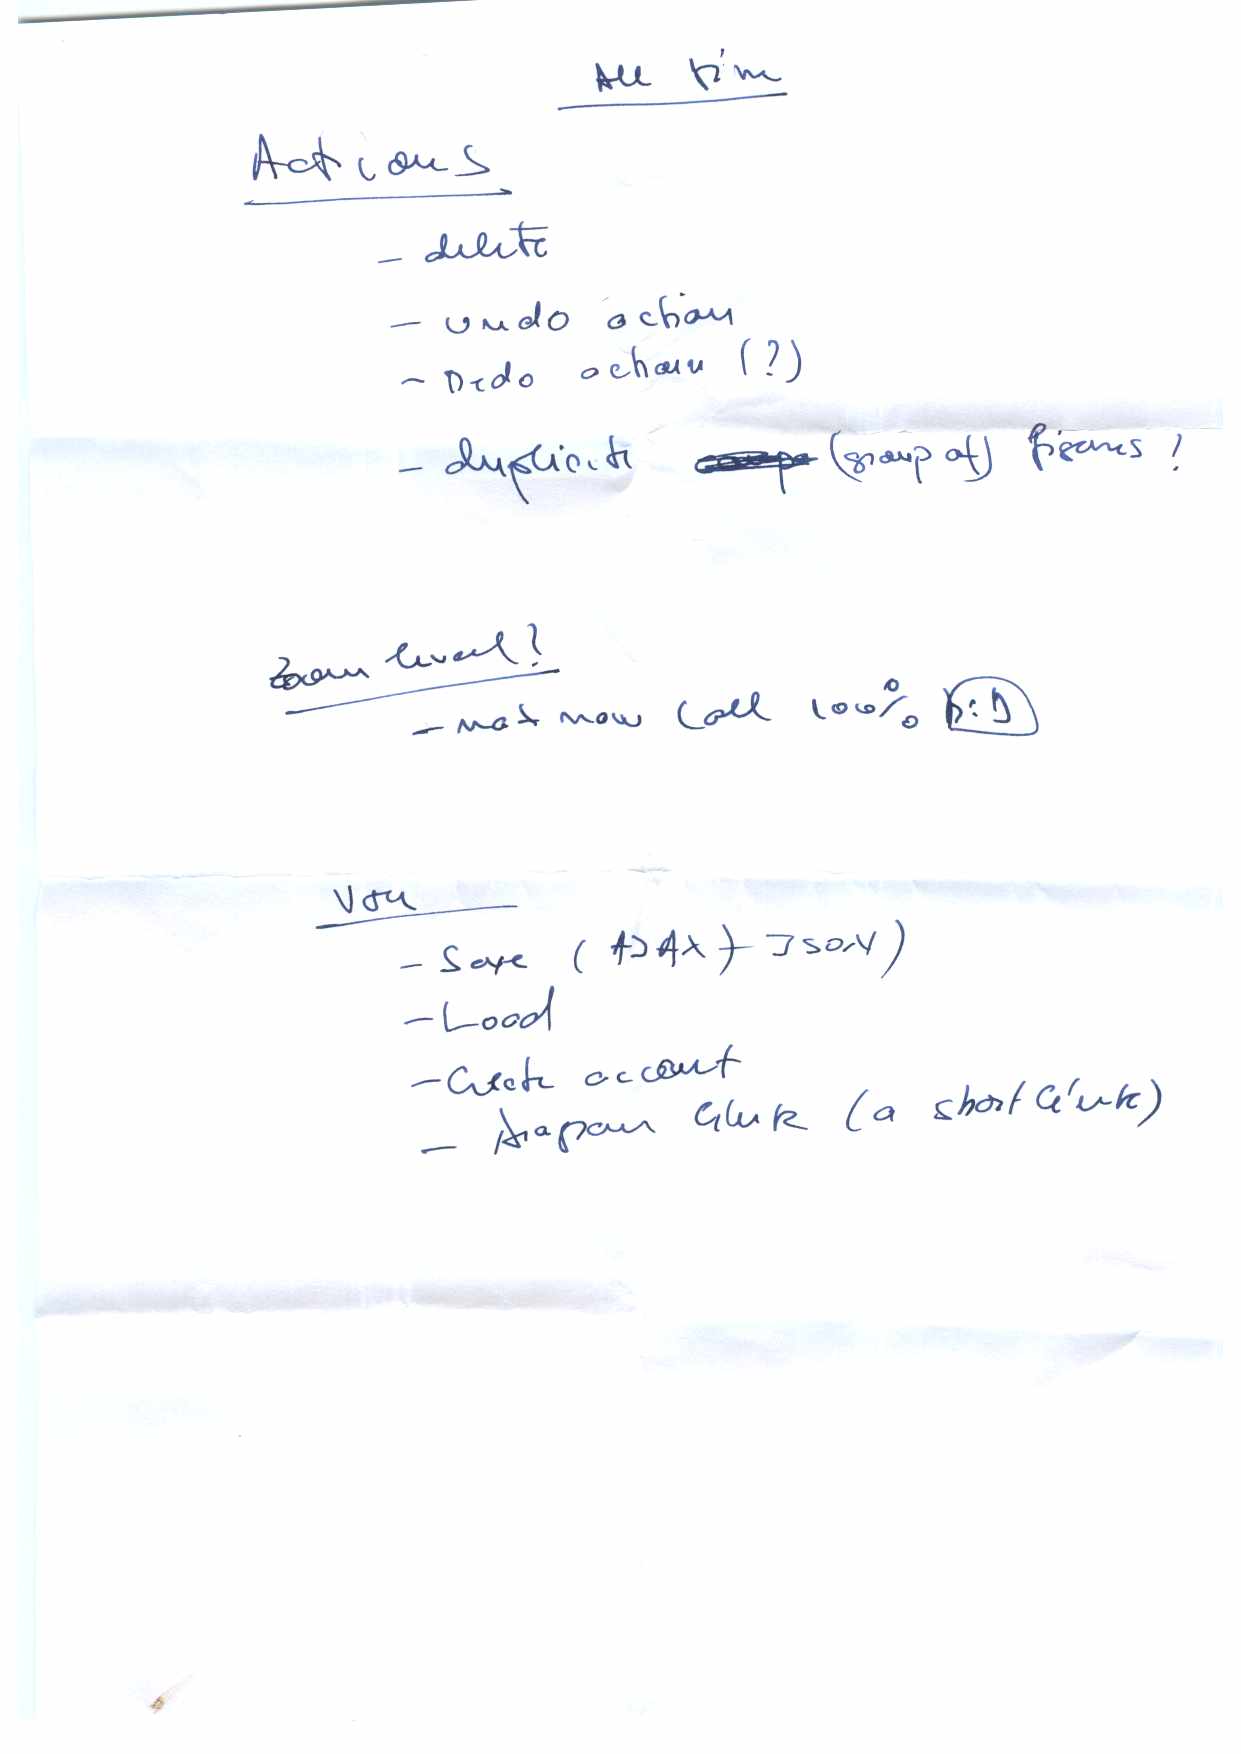 All time
Actions
- delete
- undo action
- Redo action (?)
- duplicate (group of) figures!
Zoom level?
- not now (all 100%
- Save (AJAX + JSON)
- Load
- Create account
- Diagram link (a short link)